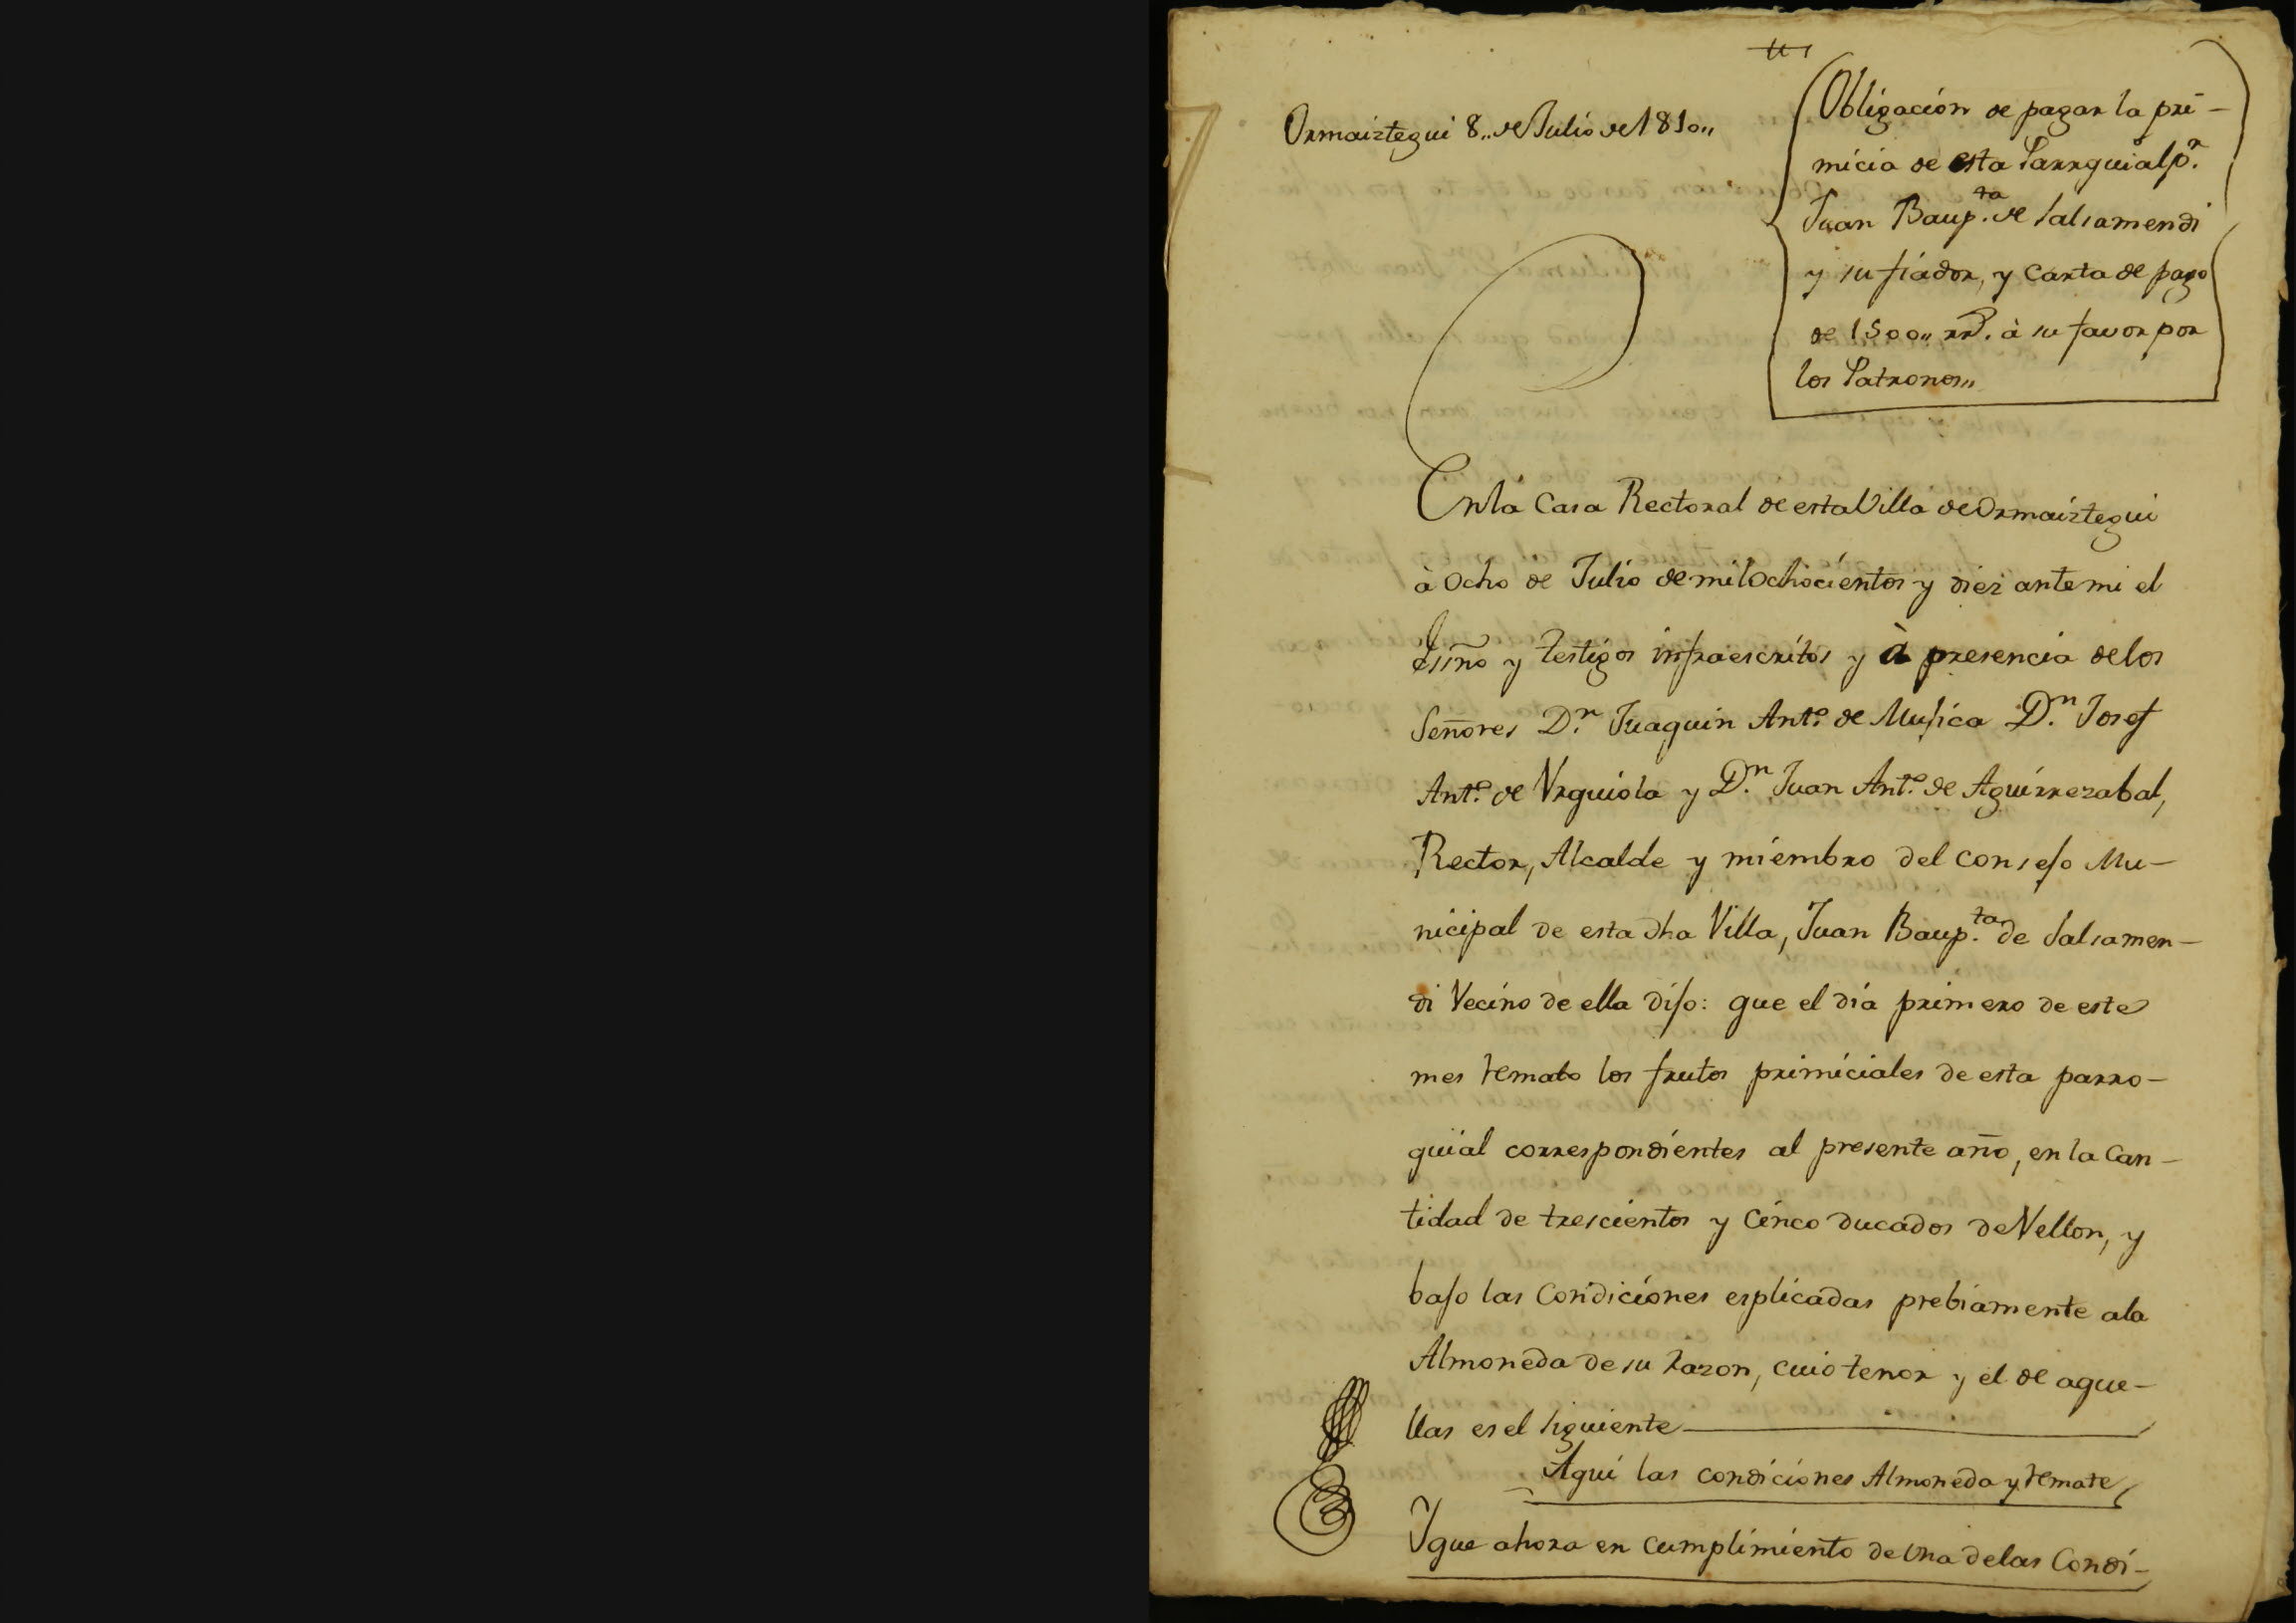 Ormaiztegui 8,, de Julio de 1810,,
Obligación de pagar la pri-
micia de esta Parrquial p.r
Juan Baup.ta de Salsamendi
y su fiador, y Carta de pago
de 1500,, rr.s à su favor por
los Patronos,,
En la Casa Rectoral de esta Villa de Ormaiztegui
à ocho de Julio de mil ochocientos y diez ante mi el
Essño y testigos infraescritos y à presencia de los
Señores D.n Juaquin Ant.o de Mujica D.n Josef
Ant.o de Urquiola y D.n Juan Ant.o de Aguirrezabal,
Rector, Alcalde y miembro del consejo Mu-
nicipal de esta dha Villa, Juan Baup.ta de Salsamen-
di Vecino de ella dijo: que el dia primero de este
mes remato los frutos primiciales de esta parro-
quial correspondientes al presente año, en la Can-
tidad de trescientos y cinco ducados de Vellon, y
bajo las Condiciones esplicadas prebiamente ala
Almoneda de su razon, cuio tenor y el de aque-
llas es el siguiente
Aqui las condiciones Almoneda y remate
Y que ahora en cumplimiento de una delas Condi-